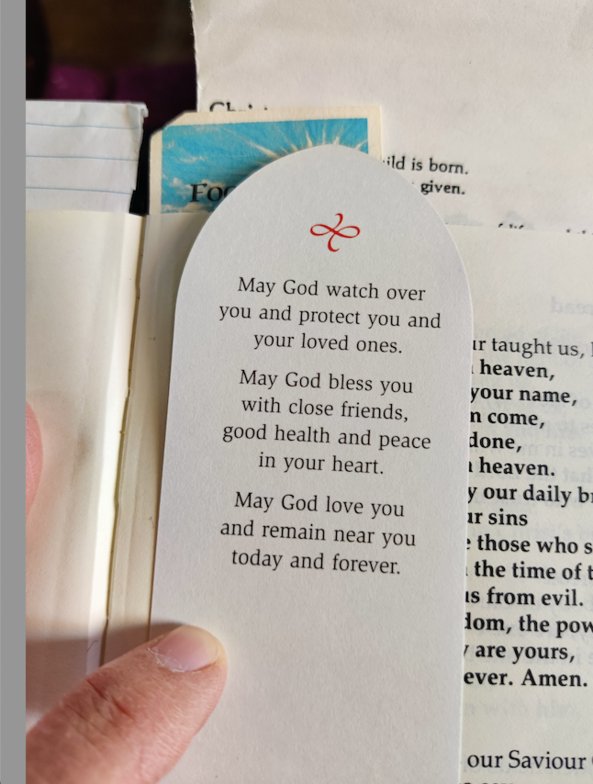 Fo
ild is born.
given.
May God watch over
you and protect you and
your loved ones.
May God bless you
with close friends,
good health and peace
in your heart.
May God love you
and remain near you
today and forever.
taught us,
heaven,
your name,
come,
done,
heaven.
our daily
sins
those who
the time of
us from evil.
the
are yours,
ever. Amen.
our Saviour